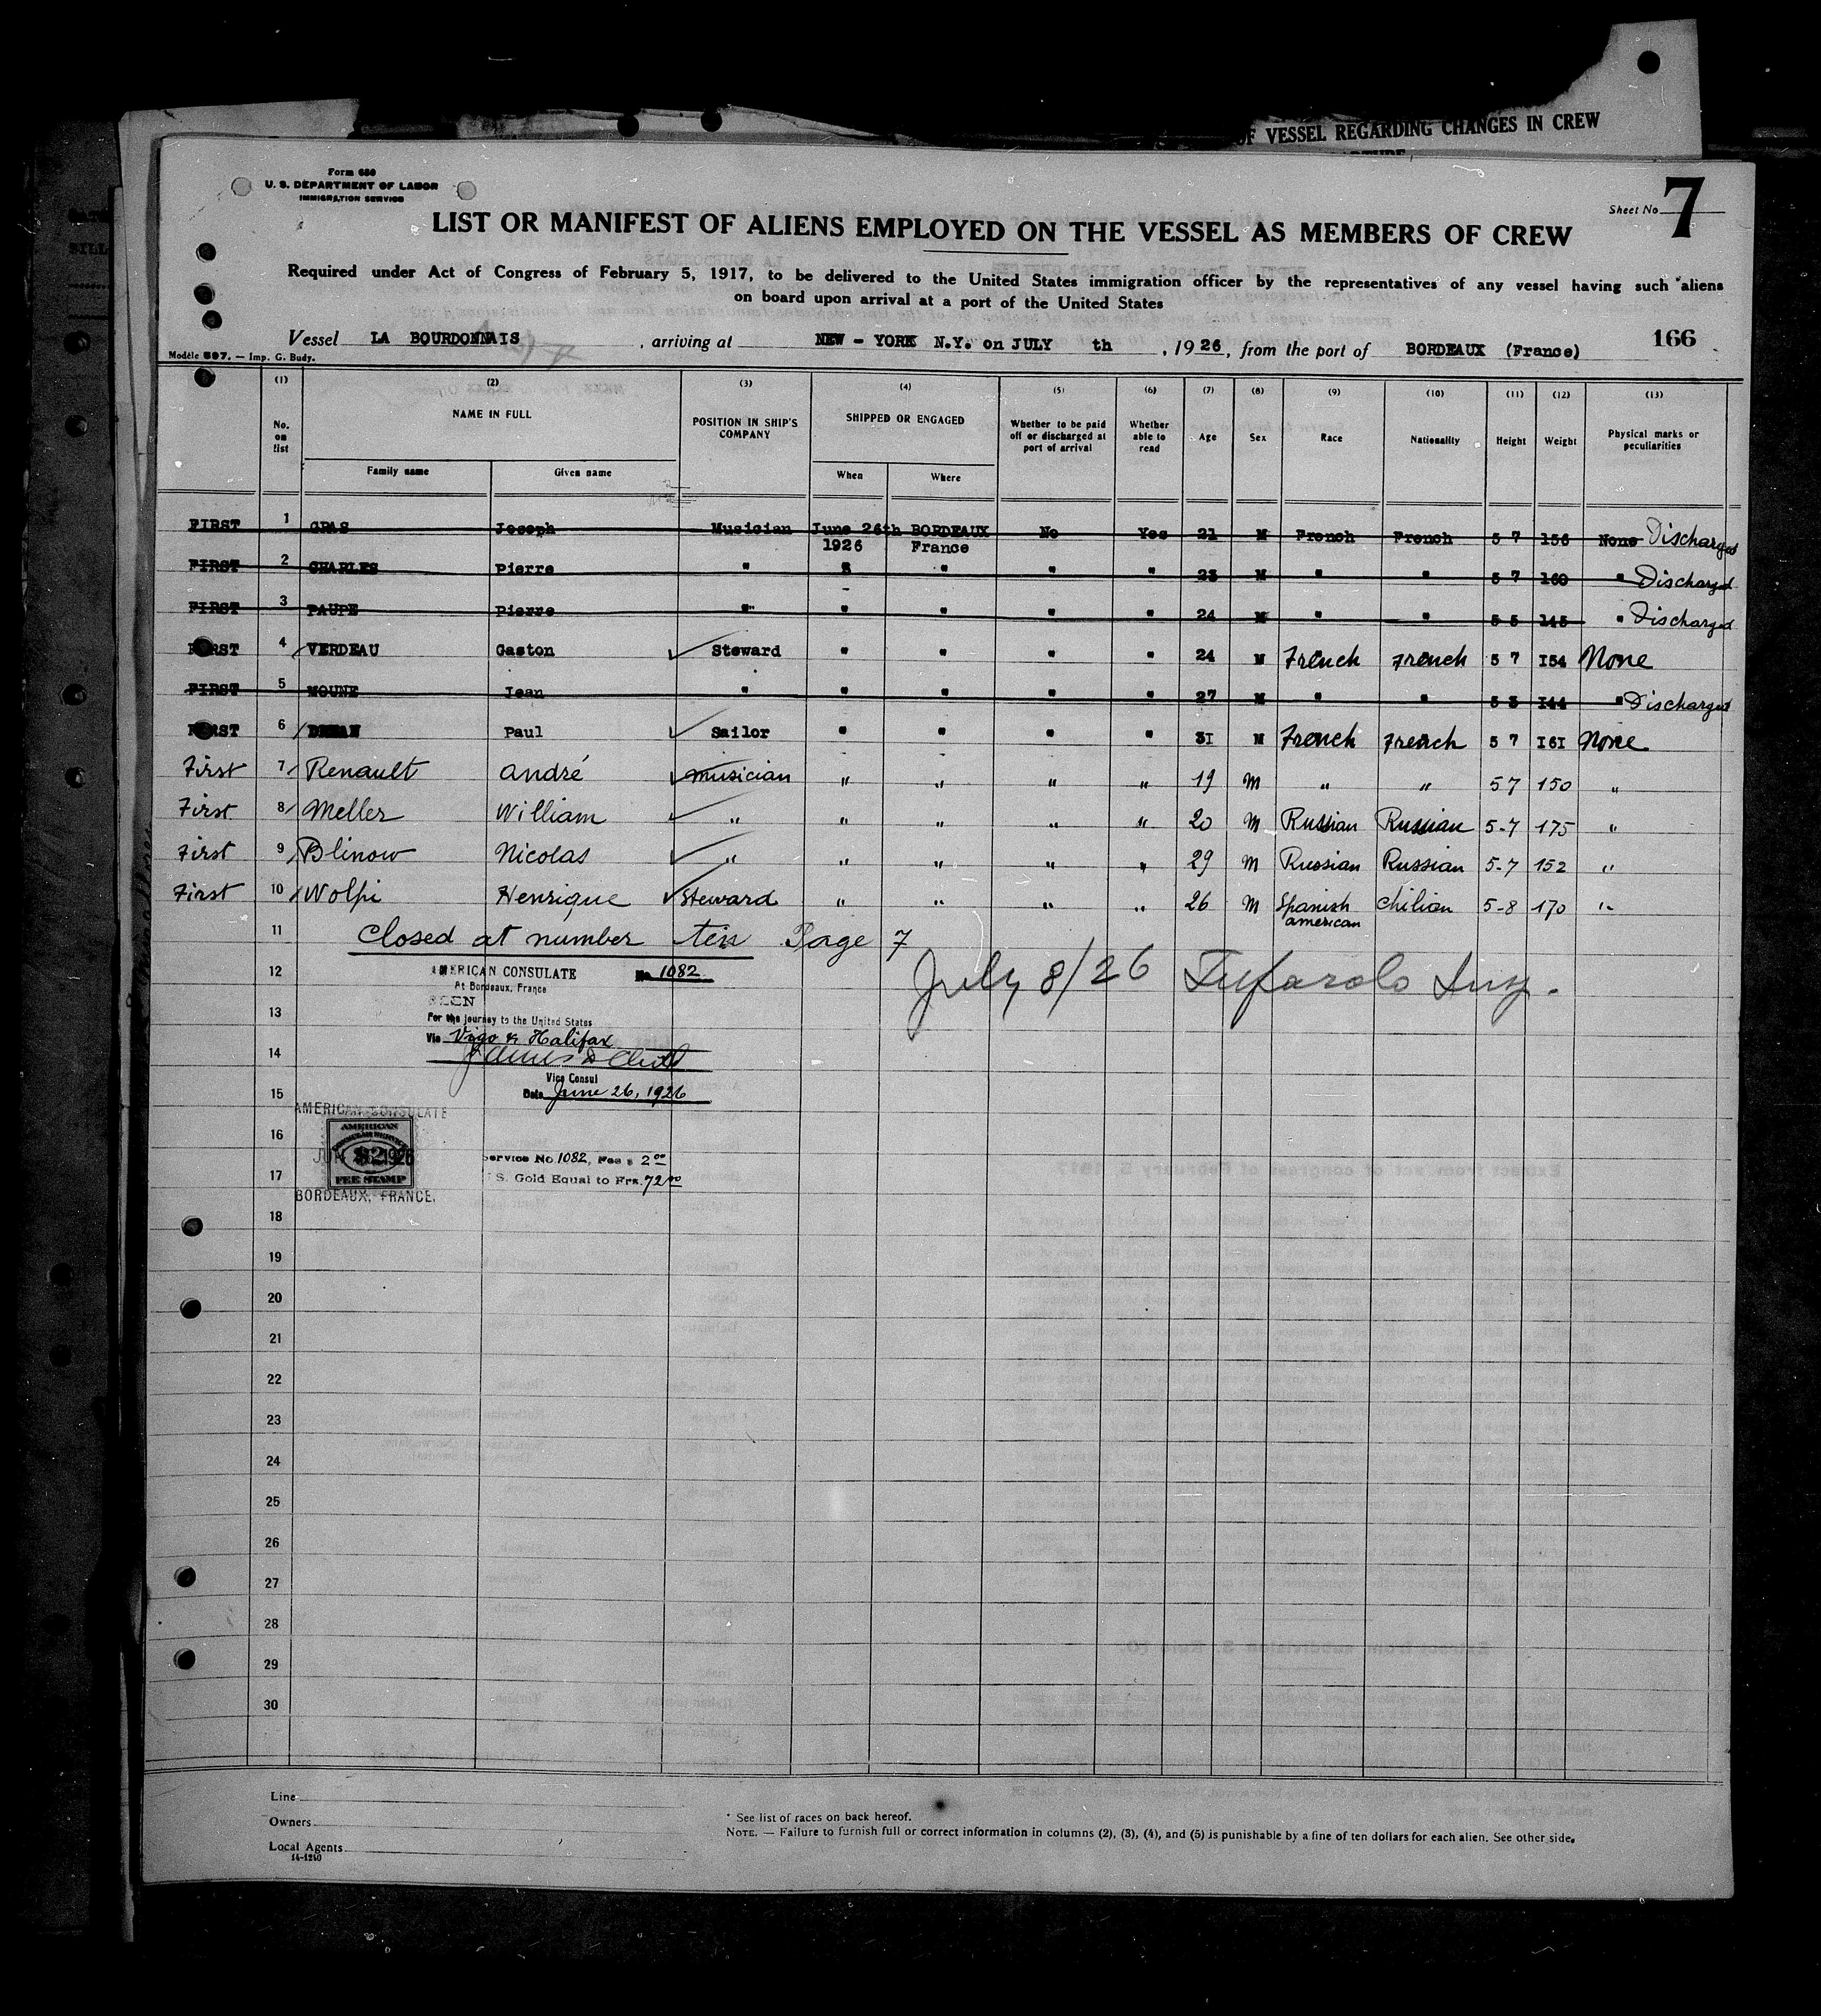 OF VESSEL REGARDING CHANGES IN CREW
Form 680
U. S. DEPARTMENT OF LABOR
IMMIGRATION SERVICE
Sheet No 7
LIST OR MANIFEST OF ALIENS EMPLOYED ON THE VESSEL AS MEMBERS OF CREW
Required under Act of Congress of February 5, 1917, to be delivered to the United States immigration officer by the representatives of any vessel having such aliens
on board upon arrival at a port of the United States
Vessel LA BOURDONNAIS, arriving at NEW - YORK N.Y. on JULY th, 1926, from the port of BORDEAUX (France) 166
Modèle 597. — Imp. G. Budy.
(1) (2) (3) (4) (5) (6) (7) (8) (9) (10) (11) (12) (13)
No. on list NAME IN FULL POSITION IN SHIP'S COMPANY SHIPPED OR ENGAGED Whether to be paid off or discharged at port of arrival Whether able to read Age Sex Race Nationality Height Weight Physical marks or peculiarities
Family name Given name When Where
FIRST 1 GRAS Joseph Musician June 26th BORDEAUX No Yes 21 M French French 5 7 156 None Discharged
1926 France
FIRST 2 CHARLES Pierre " " " " 23 M " " 5 7 160 " Discharged
FIRST 3 PAUPE Pierre " " " " " 24 M " " 5 5 145 " Discharged
FIRST 4 VERDEAU Gaston Steward " " " " 24 M French French 5 7 I54 None
FIRST 5 MOUNE Jean " " " " " 27 M " " 5 3 I44 " Discharged
FIRST 6 Paul Sailor " " " " 3I M French French 5 7 I6I None
First 7 Renault André musician " " " " 19 M " " 5 7 150 "
First 8 Meller William " " " " " 20 M Russian Russian 5-7 175 "
First 9 Blinow Nicolas " " " " " 29 M Russian Russian 5-7 152 "
First 10 Wolpi Henrique Steward " " " " 26 M Spanish american Chilian 5-8 170 "
11 Closed at number ten Page 7
12 AMERICAN CONSULATE No 1082
July 8/26
At Bordeaux, France
SEEN
13 For the journey to the United States
Via Vigo & Halifax
14
Vice Consul
15 Date June 26, 1926
AMERICAN CONSULATE
AMERICAN
16
Service No 1082, Fee $ 2.00
FEE STAMP
17 U.S. Gold Equal to Frs. 72.00
BORDEAUX, FRANCE.
18
19
20
21
22
23
24
25
26
27
28
29
30
Line
Owners
Local Agents
14-1240
* See list of races on back hereof.
NOTE. — Failure to furnish full or correct information in columns (2), (3), (4), and (5) is punishable by a fine of ten dollars for each alien. See other side.